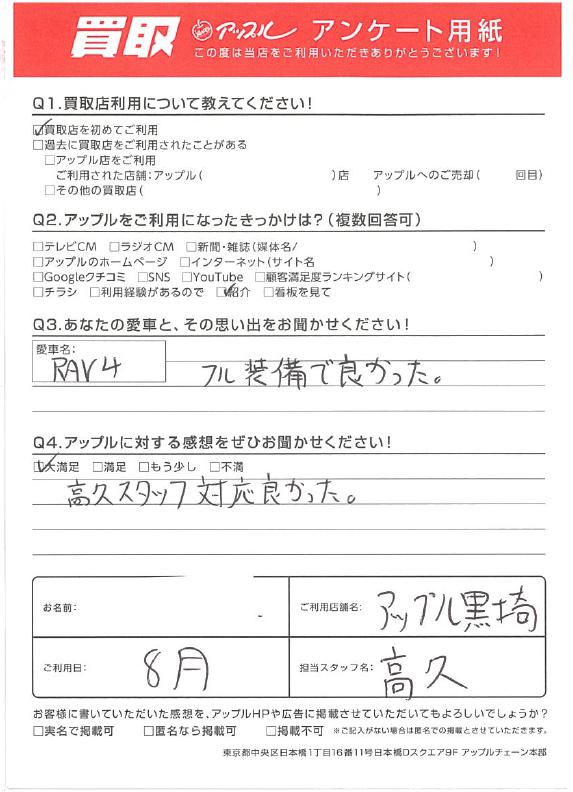 買取 アップル アンケート用紙
この度は当店をご利用いただきありがとうございます!
Q1.買取店利用について教えてください!
☑買取店を初めてご利用
□過去に買取店をご利用されたことがある
□アップル店をご利用
ご利用された店舗:アップル( )店 アップルへのご売却( 回目)
□その他の買取店( )
Q2.アップルをご利用になったきっかけは?(複数回答可)
□テレビCM □ラジオCM □新聞・雑誌(媒体名/ )
□アップルのホームページ □インターネット(サイト名 )
□Googleクチコミ □SNS □YouTube □顧客満足度ランキングサイト( )
□チラシ □利用経験があるので ☑紹介 □看板を見て
Q3.あなたの愛車と、その思い出をお聞かせください!
愛車名:
RAV4 フル装備で良かった。
Q4.アップルに対する感想をぜひお聞かせください!
☑大満足 □満足 □もう少し □不満
高久スタッフ対応良かった。
お名前: ご利用店舗名: アップル黒埼
ご利用日: 8月 担当スタッフ名: 高久
お客様に書いていただいた感想を、アップルHPや広告に掲載させていただいてもよろしいでしょうか?
□実名で掲載可 □匿名なら掲載可 □掲載不可 ※ご記入がない場合は匿名での掲載とさせていただきます。
東京都中央区日本橋1丁目16番11号日本橋Dスクエア9F アップルチェーン本部